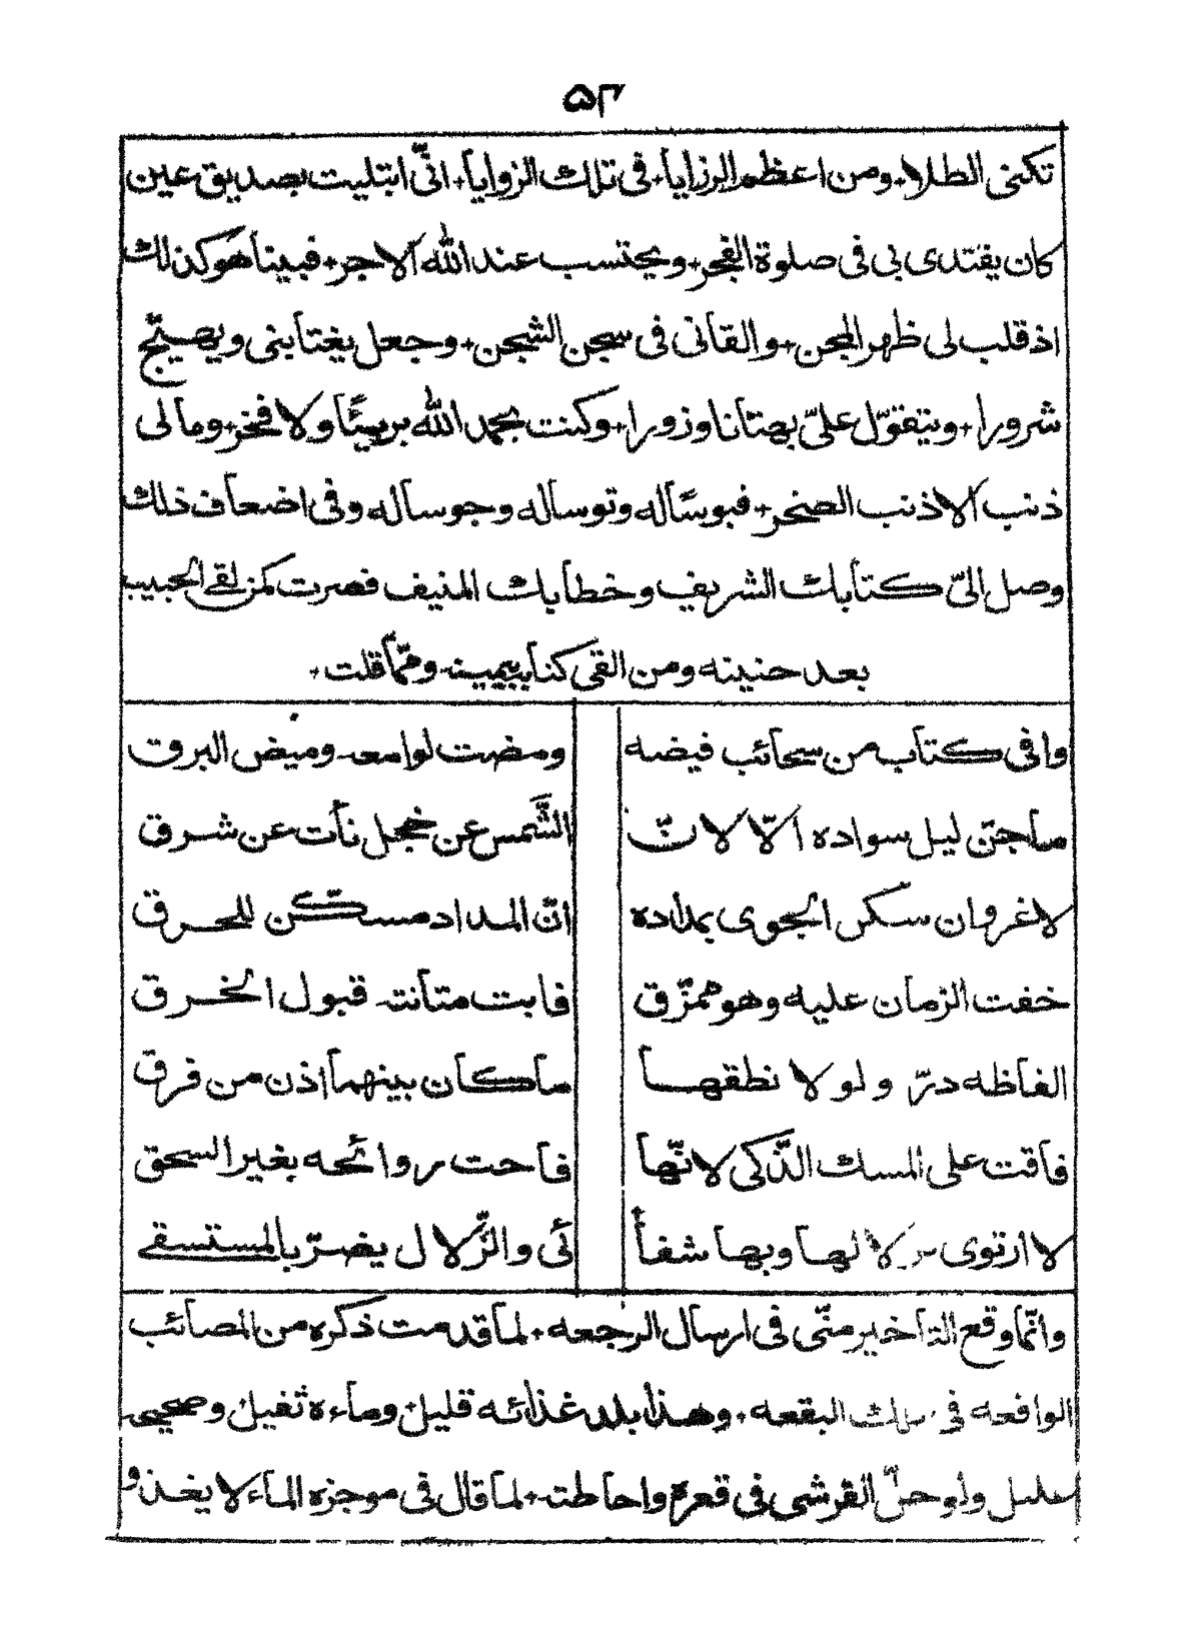 ۵۳
تكنى الطلا٭ ومن اعظم الرزايا٭ فى تلك الزوايا٭ انّى ابتليت بصديق عين
كان يقتدى بى فى صلوة الفجر٭ ويحتسب عند الله الاجر٭ فبينا هو كذلك
اذ قلب لى ظهر المجن٭ والقانى فى سجن الشجن٭ وجعل يغتابنى ويصيّح
شرورا٭ ويتقوّل علىّ بهتانا وزورا٭ وكنت بحمد الله بريئًا ولا فخر٭ ومالى
ذنب الا ذنب الصخر٭ فبوسًاله وتوساله وجوساله وفى اضعاف ذلك
وصل الىّ كتابك الشريف وخطابك المنيف فصرت كمن لقى الحبيب
بعد حنينه ومن القى كتابه بيمينه وممّا قلت٭
وافى كتاب من سحائب فيضه
ومضت لوامعه وميض البرق
ماجنّ ليل سواده الّا لانّ
الشَّمس عن خجل نأت عن شرق
لاغروان سكن الجوى بمداده
انّ المداد مسكّن للحرق
خفت الزمان عليه وهو ممزّق
فابت متانته قبول الخرق
الفاظه درّ ولو لا نطقها
ماكان بينهما اذن من فرق
فاقت على المسك الذّكى لانّها
فاحت روائحه بغير السحق
لا ارتوى زلالها وبها شفا
ئى والزّلال يضرّ بالمستسقى
وانّما وقع التاخير منّى فى ارسال الرجعه٭ لما قدمت ذكره من المصائب
الواقعه فى تلك البقعه٭ وهذا بلد غذائه قليل٭ وماءه ثقيل وصحيحه
عليل ولو حلّ القرشى فى قعره واحاطته٭ لما قال فى موجزه الماء لا يغذو